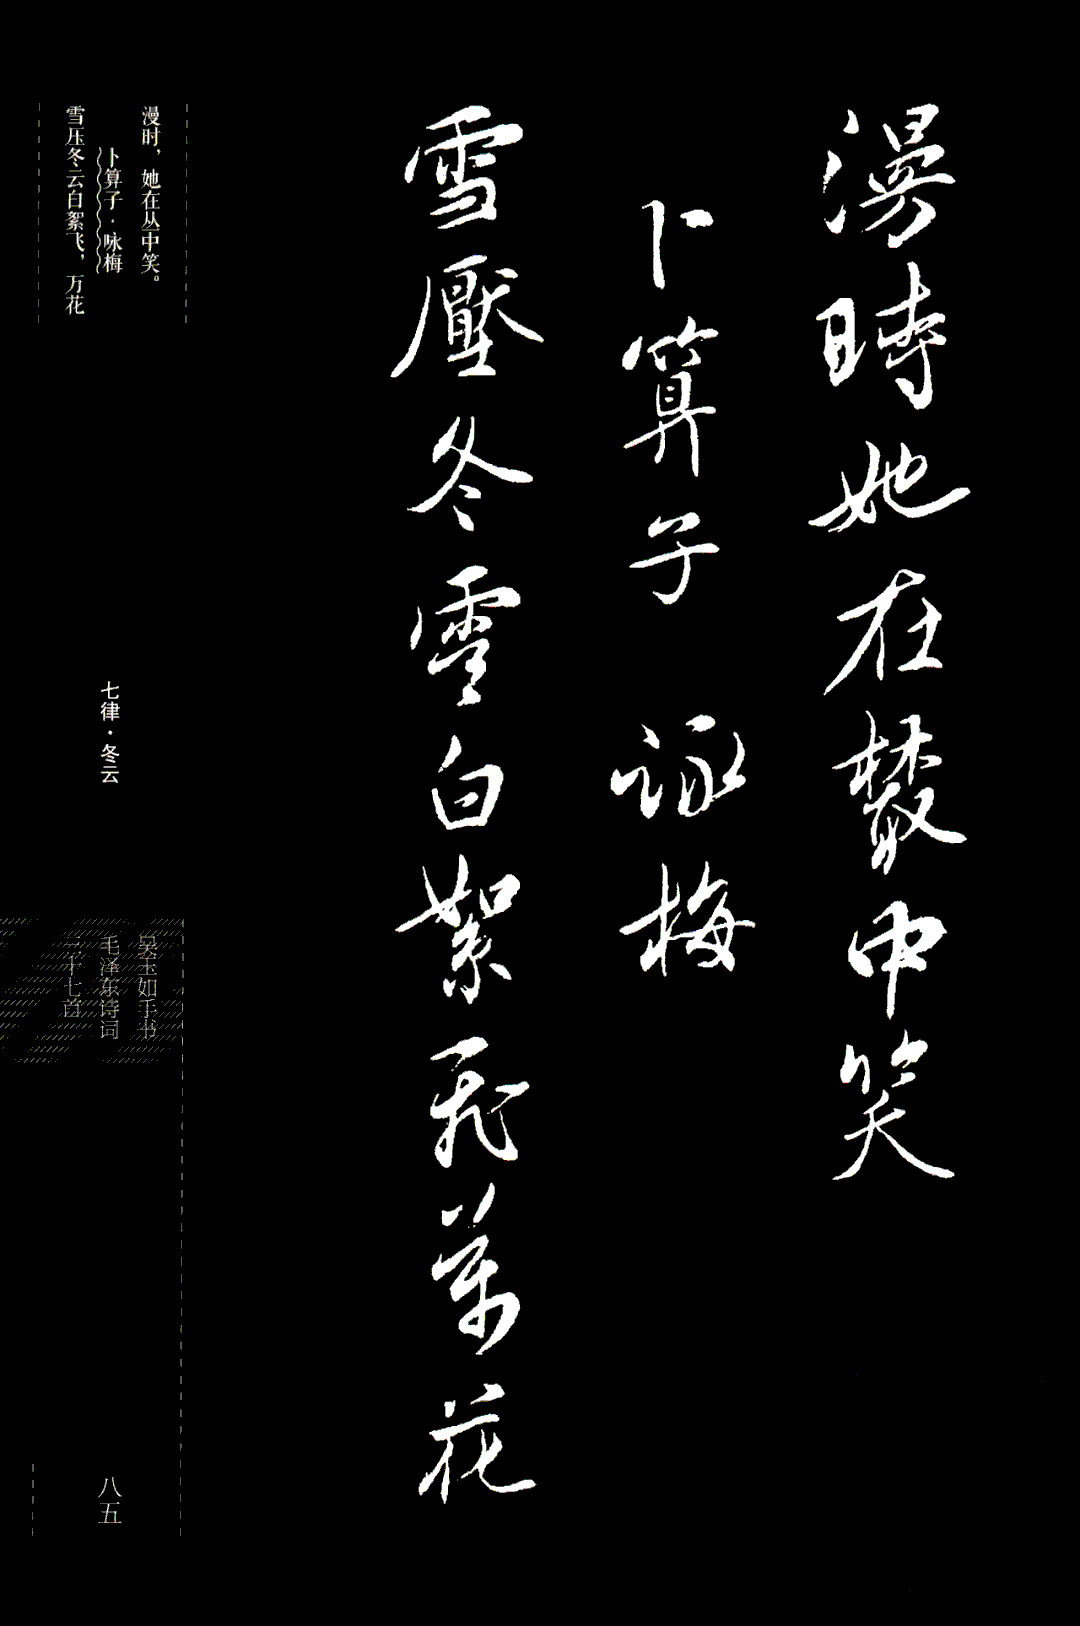 漫時她在叢中笑
卜算子 詠梅
雪壓冬雲白絮飛萬花
漫时，她在丛中笑。
卜算子·咏梅
雪压冬云白絮飞，万花
七律·冬云
吴玉如手书
毛泽东诗词
三十七首
八五